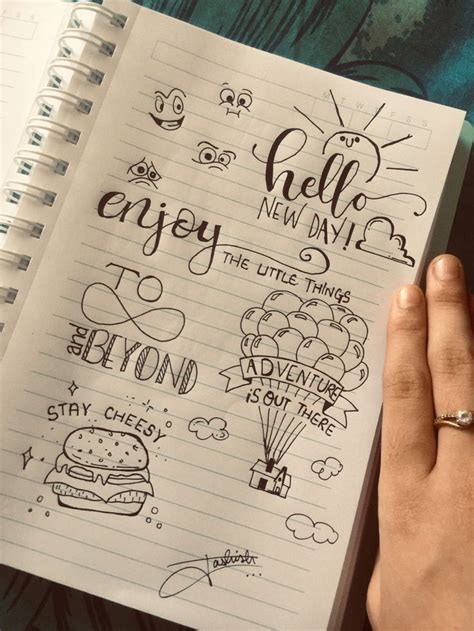 T W T F S S
hello
NEW DAY!
enjoy
THE LITTLE THINGS
TO
and BEYOND
ADVENTURE
IS OUT THERE
STAY CHEESY